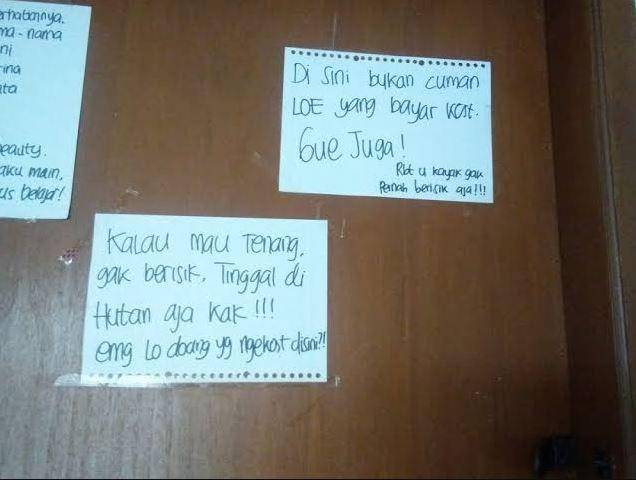 erhatiannya.
ma - nama
ni
rina
ata
eauty.
aku main,
us belajar!
Di Sini bukan cuman
LOE yang bayar kost.
Gue Juga!
Ribt u kayak gak
Pernah berisik aja!!!
Kalau mau Tenang,
gak berisik, Tinggal di
Hutan aja Kak!!!
emg Lo doang yg ngekost disini?!